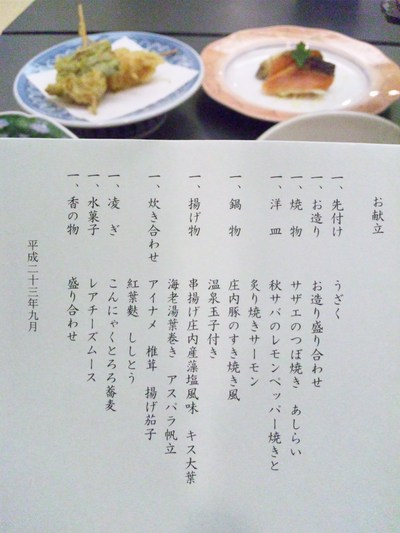 お献立
一、先付け　うざく
一、お造り　お造り盛り合わせ
一、焼物　サザエのつぼ焼き　あしらい
一、洋皿　秋サバのレモンペッパー焼きと
炙り焼きサーモン
一、鍋物　庄内豚のすき焼き風
温泉玉子付き
一、揚げ物　串揚げ庄内産藻塩風味　キス大葉
海老湯葉巻き　アスパラ帆立
一、炊き合わせ　アイナメ　椎茸　揚げ茄子
紅葉麩　ししとう
一、凌ぎ　こんにゃくとろろ蕎麦
一、水菓子　レアチーズムース
一、香の物　盛り合わせ
平成二十三年九月